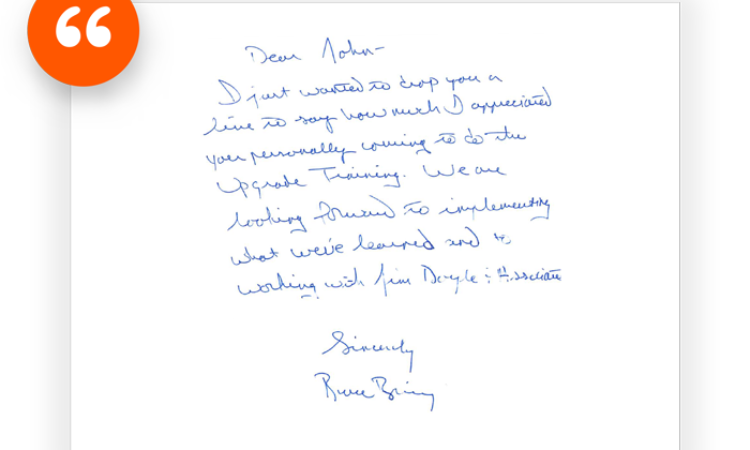 “
Dear John-
I just wanted to drop you a
line to say how much I appreciated
your personally coming to do the
Upgrade Training. We are
looking forward to implementing
what we've learned and to
working with Jim Doyle & Associates
Sincerely
Bruce